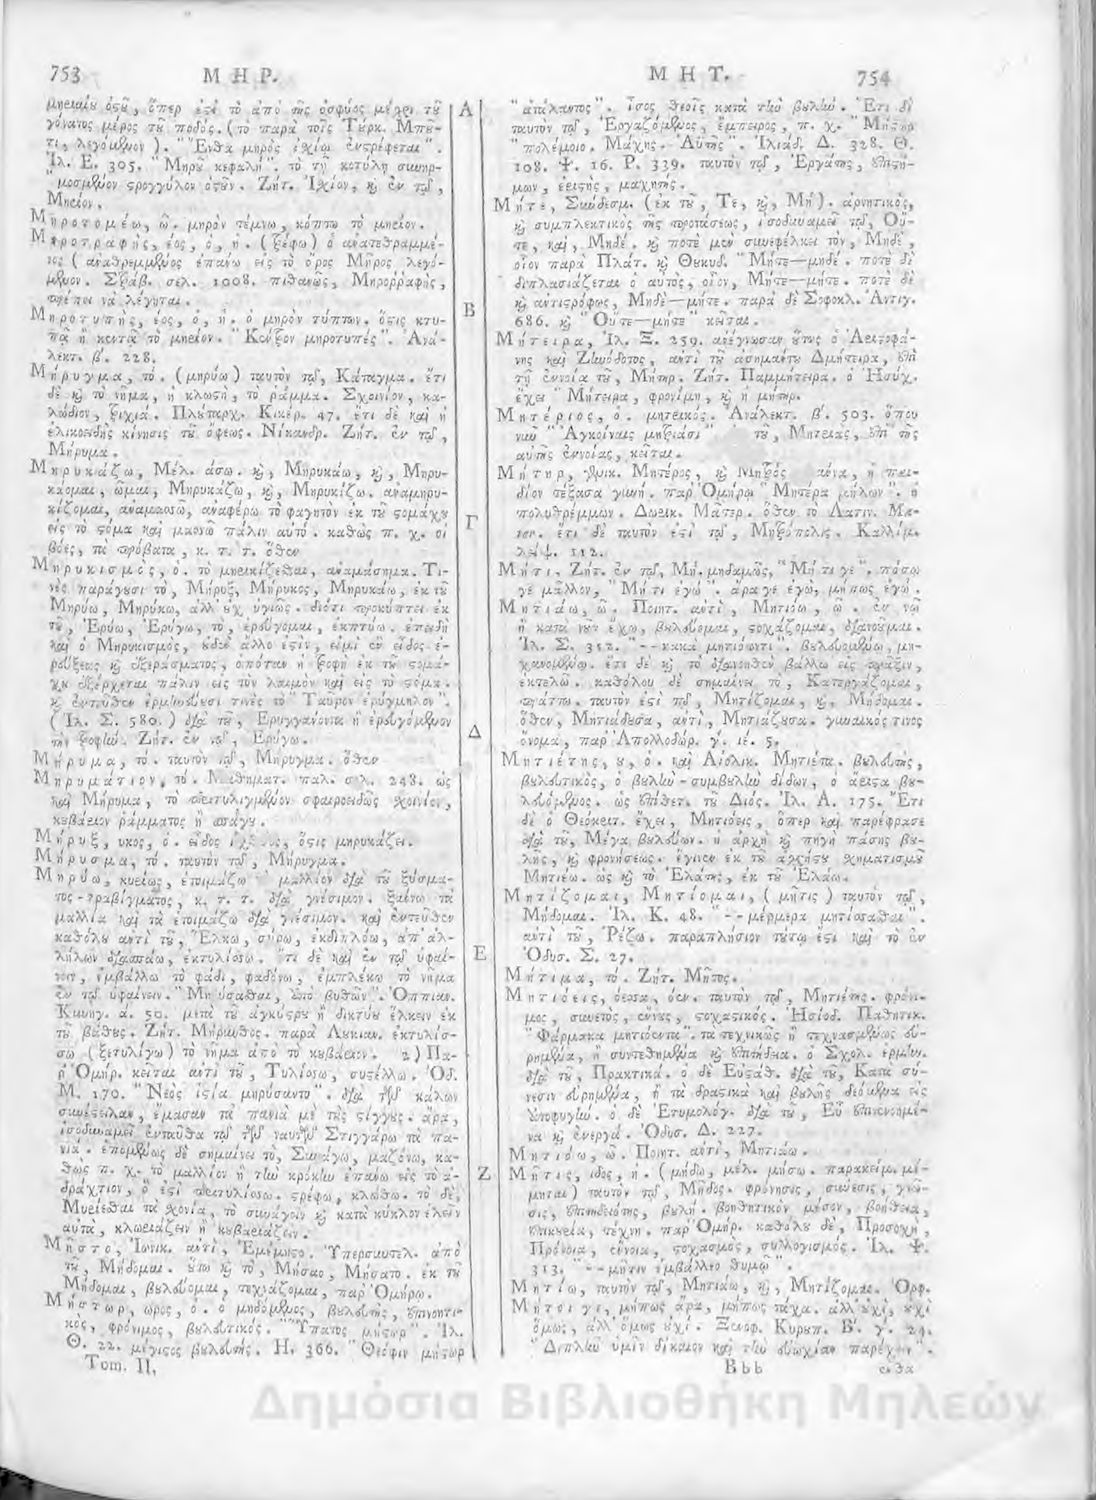 753 ΜΗΡ.
μηριαίου ὀστοῦ, ὅπερ ἐστὶ τὸ ἀπὸ τῆς ὀσφύος μέχρι τοῦ
γόνατος μέρος τοῦ ποδός. (τὸ παρὰ τοῖς Τούρκ. Μπου-
τι, λεγόμενον). "Ἔνθα μηρὸς ἰσχίῳ ἐνστρέφεται".
Ἰλ. Ε. 305. "Μηροῦ κεφαλή". τὸ τῇ κοτύλῃ συνηρ-
"μοσμένον στρογγύλον ὀστοῦν. Ζήτ. Ἰσχίον, καὶ ἐν τῷ,
Μηρίον.
Μηροτομέω, ῶ. μηρὸν τέμνω, κόπτω τὸ μηρίον.
Μηροτραφής, έος, ὁ, ἡ. (τρέφω) ὁ ἀνατεθραμμέ-
νος (ἀναθρεμμένος ἐπάνω εἰς τὸ ὄρος Μῆρος λεγό-
μενον. Στράβ. σελ. 1008. πιθανῶς, Μηροῤῥαφής,
πρέπει νὰ λέγηται.
Μηροτυπής, έος, ὁ, ἡ. ὁ μηρὸν τύπτων. ὅστις κτυ-
πᾷ ἢ κεντᾷ τὸ μηρίον. "Κέντρον μηροτυπές". Ἀνά-
λεκτ. β'. 228.
Μήρυγμα, τό. (μηρύω) ταὐτὸν τῷ, Κάταγμα. ἔτι
δὲ καὶ τὸ νῆμα, ἡ κλωστή, τὸ ῥάμμα. Σχοινίον, κα-
λώδιον, τριχιά. Πλούταρχ. Κικέρ. 47. ἔτι δὲ καὶ ἡ
ἑλικοειδὴς κίνησις τοῦ ὄφεως. Νίκανδρ. Ζήτ. ἐν τῷ,
Μήρυμα.
Μηρυκάζω, Μέλ. άσω. καὶ, Μηρυκάω, καὶ, Μηρυ-
κάομαι, ῶμαι, Μηρυκάζω, καὶ, Μηρυκίζω. ἀναμηρυ-
κίζομαι, ἀναμασσῶ, ἀναφέρω τὸ φαγητὸν ἐκ τοῦ στομάχου
εἰς τὸ στόμα καὶ μασσῶ πάλιν αὐτό. καθὼς π. χ. οἱ
βόες, τὰ πρόβατα, κ. τ. τ. ὅθεν
Μηρυκισμός, ὁ. τὸ μηρικίζεσθαι, ἀναμάσημα. Τι-
νὲς παράγουσι τὸ, Μήρυξ, Μήρυκος, Μηρυκάω, ἐκ τοῦ
Μηρύω, Μηρύκω, ἀλλ' οὐχ ὑγιῶς. διότι προκύπτει ἐκ
τοῦ, Ἐρύω, Ἐρύγω, τὸ, ἐρεύγομαι, ἐκπτύω. ἐπειδὴ
καὶ ὁ Μηρυκισμός, οὐδὲν ἄλλο ἐστίν, εἰμὶ ἓν εἶδος ἐ-
ρεύξεως καὶ ἐξεράσματος, ὁπόταν ἡ τροφὴ ἐκ τοῦ στομά-
χου ἐξέρχεται πάλιν εἰς τὸν λαιμὸν καὶ εἰς τὸ στόμα.
καὶ ἐντεῦθεν ἑρμηνεύουσί τινὲς τὸ "Ταῦρον ἐρύγμηλον".
(Ἰλ. Σ. 580.) διὰ τοῦ, Ἐρυγγάνοντα ἢ ἐρευγόμενον
τὴν τροφήν. Ζήτ. ἐν τῷ, Ἐρύγω.
Μήρυμα, τό. ταὐτὸν τῷ, Μήρυγμα. ὅθεν
Μηρυμάτιον, τό. Μαθηματ. παλ. σελ. 248. ὡς
καὶ Μήρυμα, τὸ περιτυλιγμένον σφαιροειδῶς σχοινίον,
κουβάριον ῥάμματος ἢ σπάγου.
Μήρυξ, υκος, ὁ. εἶδος ἰχθύος, ὅστις μηρυκάζει.
Μήρυσμα, τό. ταὐτὸν τῷ, Μήρυγμα.
Μηρύω, κυρίως, ἑτοιμάζω μαλλίον διὰ τοῦ ξύσμα-
τος-τραβίγματος, κ. τ. τ. διὰ γνέσιμον. ξαίνω τὰ
μαλλία καὶ τὰ ἑτοιμάζω διὰ γνέσιμον. καὶ ἐντεῦθεν
καθόλου ἀντὶ τοῦ, Ἕλκω, σύρω, ἐκδιπλόω, ἀπ' ἀλ-
λήλων διασπάω, ἐκτυλίσσω. ἔτι δὲ καὶ ἐν τῷ ὑφαί-
νειν, ἐμβάλλω τὸ φάδι, φαδόνω, ἐμπλέκω τὸ νῆμα
ἐν τῷ ὑφαίνειν. "Μηρύσασθαι, ὑπὸ βυθῶν". Ὀππιαν.
Κυνηγ. ά. 50. μετὰ τοῦ ἀγκύστρου ἢ δικτύου ἕλκειν ἐκ
τοῦ βάθους. Ζήτ. Μήρινθος. παρὰ Λουκιαν. ἐκτυλίσ-
σω (ξετυλίγω) τὸ νῆμα ἀπὸ τὸ κουβάριον. 2) Πα-
ρ' Ὁμήρ. κεῖται ἀντὶ τοῦ, Τυλίσσω, συστέλλω. Ὀδ.
Μ. 170. "Νεὸς ἱστία μηρύσαντο". διὰ τῶν κάλων
συνέστειλαν, ἔμασαν τὰ πανιὰ μὲ τὰς στίγγους. ἄρα,
ἰσοδυναμεῖ ἐνταῦθα τῷ τῶν ναυτῶν Στιγγάρω τὰ πα-
νιά. ἑπομένως δὲ σημαίνει τό, Συνάγω, μαζόνω, κα-
θὼς π. χ. τὸ μαλλίον ἢ τὴν κρόκην ἐπάνω εἰς τὸ ἀ-
δράχτιον, ὅ ἐστι περιτυλίσσω. στρέφω, κλώθω. τὸ δέ,
Μυρίεσθαι τὰ σχονία, τὸ συνάγειν καὶ κατὰ κύκλον ἑλεῖν
αὐτά, κλωριάζειν ἢ κουβαριάζειν.
Μῆστο, Ἰωνικ. ἀντὶ, Ἐμέμηστο. Ὑπερσυντελ. ἀπὸ
τοῦ, Μήδομαι. οὕτω καὶ τὸ, Μήσαο, Μήσατο. ἐκ τοῦ
Μήδομαι, βουλεύομαι, τεχνάζομαι, παρ' Ὁμήρῳ.
Μήστωρ, ωρος, ὁ. ὁ μηδόμενος, βουλευτής, ἐπινοητι-
κός, φρόνιμος, βουλευτικός. "Ὕπατος μήστωρ". Ἰλ.
Θ. 22. μέγιστος βουλευτής. Η. 366. "Θεόφιν μήστωρ
Tom. II.
Α
Β
Γ
Δ
Ε
Ζ
ΜΗΤ. 754
"ἀτάλαντος". ἴσος θεοῖς κατὰ τὴν βουλήν. Ἔτι δὲ
ταὐτὸν τῷ, Ἐργαζόμενος, ἔμπειρος, π. χ. "Μήστωρ
"πολέμοιο. Μάχης. Ἀϋτῆς". Ἰλιάδ. Δ. 328. Θ.
108. Ψ. 16. Ρ. 339. ταὐτὸν τῷ, Ἐργάτης, ἐπιστή-
μων, ἐριστής, μαχητής.
Μήτε, Συνδεσμ. (ἐκ τοῦ, Τε, καὶ, Μή). ἀρνητικός,
καὶ συμπλεκτικὸς τῆς προτάσεως, ἰσοδυναμεῖ τῷ, Οὔ-
τε, καὶ, Μηδέ. καὶ ποτὲ μὲν συνεφέλκει τὸν, Μηδέ,
οἷον παρὰ Πλάτ. καὶ Θουκυδ. "Μήτε—μηδέ. ποτὲ δὲ
διπλασιάζεται ὁ αὐτός, οἷον, Μήτε—μήτε. ποτὲ δὲ
καὶ ἀντιστρόφως, Μηδὲ—μήτε. παρὰ δὲ Σοφοκλ. Ἀντιγ.
686. καὶ "Οὔτε—μήτε" κεῖται.
Μήτειρα, Ἰλ. Ξ. 259. ἀνέγνωσαν οὕτως ὁ Ἀριστοφά-
νης καὶ Ζηνόδοτος, ἀντὶ τοῦ ἀσημάντου Δμήτειρα, ἐπὶ
τῇ ἐννοίᾳ τοῦ, Μήτηρ. Ζήτ. Παμμήτειρα. ὁ Ἡσύχ.
ἔχει "Μήτειρα, φρονίμη, καὶ ἡ μήτηρ.
Μητέριος, ὁ. μητρικός. Ἀνάλεκτ. β'. 503. ὅπου
νῦν "Ἀγκοίναις μητριάσι" τοῦ, Μητέριας, ἐπὶ τῆς
αὐτῆς ἐννοίας, κεῖται.
Μήτηρ, γενικ. Μητέρος, καὶ Μητρός μάνα, ἡ παι-
δίον τέξασα γυνή. παρ' Ὁμήρῳ "Μητέρα μήλων". ἡ
πολυθρέμμων. Δωρικ. Μάτερ. ὅθεν τὸ Λατιν. Ma-
ter. ἔτι δὲ ταὐτὸν ἐστὶ τῷ, Μητρόπολις. Καλλίμ.
112.
Μήτι, Ζήτ. ἐν τῷ, Μή. μηδαμῶς, "Μή τι γε". πόσῳ
γε μᾶλλον, "Μή τι ἐγώ". ἄραγε ἐγώ, μήπως ἐγώ.
Μητιάω, ῶ. Ποιητ. ἀντὶ, Μητιόω, ῶ. ἐν νῷ
ἢ κατὰ νοῦν ἔχω, βουλεύομαι, στοχάζομαι, διανοοῦμαι.
Ἰλ. Σ. 312. "--κακὰ μητιόωντι". βουλευομένῳ, μη-
χανωμένῳ. ἔτι δὲ καὶ τὸ διανοηθὲν βάλλω εἰς πρᾶξιν,
ἐκτελῶ. καθόλου δὲ σημαίνει τό, Κατεργάζομαι,
πράττω. ταὐτὸν ἐστὶ τῷ, Μητίζομαι, καὶ, Μήδομαι.
ὅθεν, Μητιάδουσα, ἀντὶ, Μητιάζουσα. γυναικός τινος
ὄνομα, παρ' Ἀπολλοδώρ. γ'. ιέ. 5.
Μητιέτης, ου, ὁ. καὶ Αἰολικ. Μητιέτα. βουλευτής,
βουλευτικός, ὁ βουλὴν-συμβουλὴν δίδων, ὁ ἄριστα βου-
λευόμενος. ὡς ἐπίθετ. τοῦ Διός. Ἰλ. Α. 175. Ἔτι
δὲ ὁ Θεόκριτ. ἔχει, Μητιόεις, ὅπερ καὶ παρέφρασε
διὰ τοῦ, Μέγα βουλεύων. ἡ ἀρχὴ καὶ πηγὴ πάσης βου-
λῆς, καὶ φρονήσεως. ἔγινεν ἐκ τοῦ ἀχρήστου σχηματισμοῦ
Μητιέω. ὡς καὶ τὸ Ἐλάτης, ἐκ τοῦ Ἐλάω.
Μητίζομαι, Μητίομαι, (μῆτις) ταὐτὸν τῷ,
Μήδομαι. Ἰλ. Κ. 48. "--μέρμερα μητίσασθαι".
ἀντὶ τοῦ, Ῥέζω. παραπλήσιον τούτῳ ἐστὶ καὶ τὸ ἐν
Ὀδυσ. Σ. 27.
Μήτιμα, τό. Ζήτ. Μῆτις.
Μητιόεις, όεσσα, όεν. ταὐτὸν τῷ, Μητιέτης. φρόνι-
μος, συνετός, εὔνους, στοχαστικός. Ἡσίοδ. Παθητικ.
"Φάρμακα μητιόεντα". τὰ τεχνικῶς ἢ τεχνασμένως εὑ-
ρημένα, ἢ συντεθημένα καὶ ἐπιτήδεια. ὁ Σχολ. ἑρμην.
διὰ τοῦ, Πρακτικά. ὁ δὲ Εὐστάθ. διὰ τοῦ, Κατὰ σύ-
νεσιν εὑρημένα, ἢ τὰ δραστικὰ καὶ βουλῆς δεόμενα εἰς
ὑποφυγήν. ὁ δὲ Ἐτυμολόγ. διὰ τοῦ, Εὖ ἐπινενοημέ-
να καὶ ἐνεργά. Ὀδυσ. Δ. 227.
Μητιόω, ῶ. Ποιητ. ἀντὶ, Μητιάω.
Μῆτις, ιδος, ἡ. (μήδω, μέλ. μήσω. παρακείμ. μέ-
μηται) ταὐτὸν τῷ, Μῆδος. φρόνησις, σύνεσις, γνῶ-
σις, ἐπιτηδειότης, βουλή. βοηθητικὸν μέσον, βοήθεια,
ἐπικουρία, τέχνη. παρ' Ὁμήρ. καθόλου δέ, Προσοχή,
Πρόνοια, εὔνοια, στοχασμός, συλλογισμός. Ἰλ. Ψ.
313. "--μῆτιν ἐμβάλλεο θυμῷ".
Μητίω, ταὐτὸν τῷ, Μητιάω, καὶ, Μητίζομαι. Ὀρφ.
Μήτοι γε, μήπως ἄρα, μήπως τάχα. ἀλλ' οὐχί, οὐχὶ
ὅμως, ἀλλ' ὅμως οὐχί. Ξενοφ. Κυρουπ. Β'. γ'. 24.
"Διπλῆν ὑμῖν δίκαιον καὶ τὴν εὐωχίαν παρέχειν".
Bbb ἔνθα
Δημόσια Βιβλιοθήκη Μηλεών